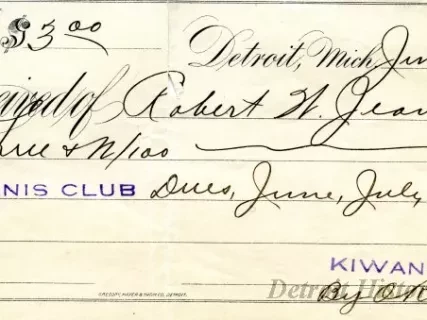 $3.00 Detroit, Mich. Jun
eived of Robert W. Jean
ree & N/100
NIS CLUB Dues, June, July,
KIWAN
By
GREGORY, MAYER & THOM CO., DETROIT.
Detroit Histo